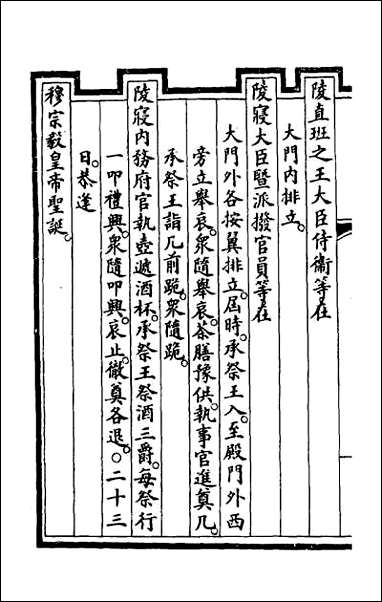 陵直班之王大臣侍衞等在
大門内排立。
陵寢大臣暨派撥官員等在
大門外各按翼排立。屆時。承祭王入。至殿門外西
旁立舉哀。衆隨舉哀。茶膳豫供。執事官進奠几。
承祭王詣几前跪。衆隨跪。
陵寢内務府官執壺遞酒杯。承祭王祭酒三爵。每祭行
一叩禮。興。衆隨叩興。哀止。徹奠各退。○二十三
日。恭逢
穆宗毅皇帝聖誕。